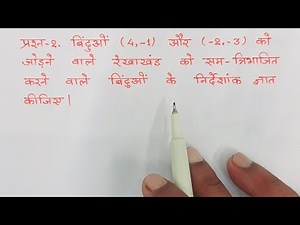 प्रश्न-2. बिंदुओं (4,-1) और (-2,-3) को
जोड़ने वाले रेखाखंड को सम-त्रिभाजित
करने वाले बिंदुओं के निर्देशांक ज्ञात
कीजिए।